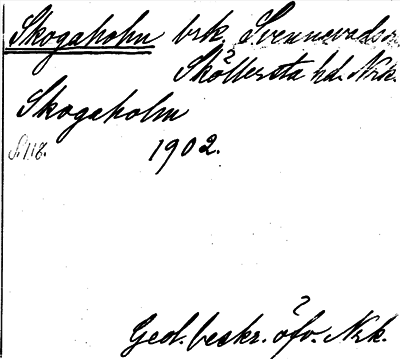 Skogaholm brk. Svennevads sn
Sköllersta hd. Nrk.
Skogaholm
S. 118. 1902.
Geol. beskr. öfv. Nrk.